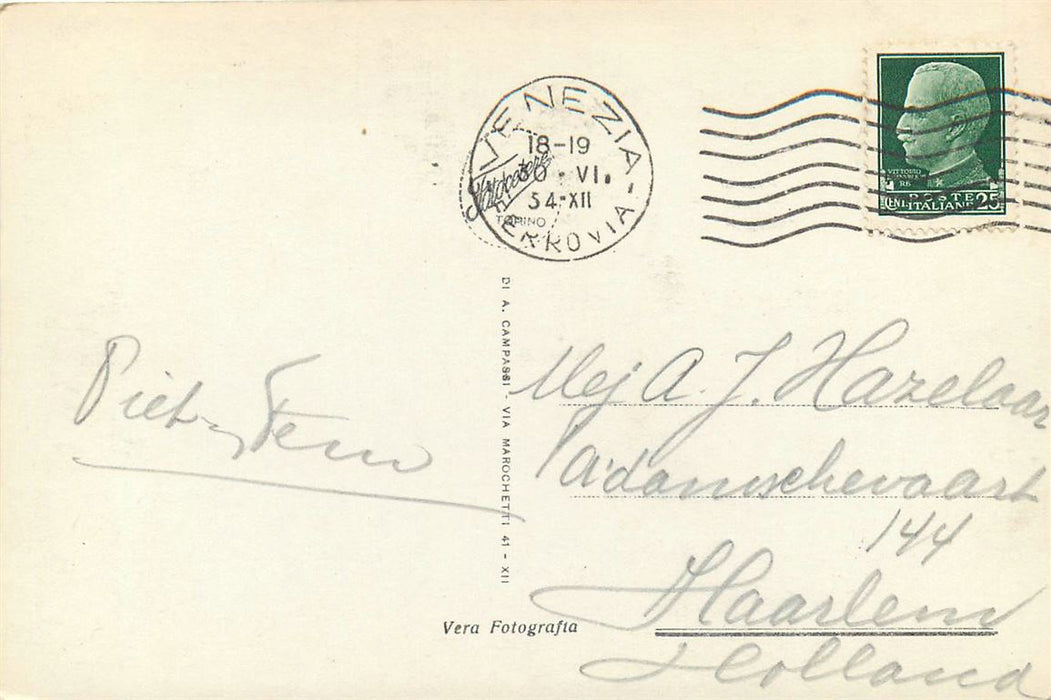 VENEZIA
18-19
VI.
34-XII
FERROVIA
TORINO
VITTORIO
RE
POSTE
CENT. ITALIANE 25
DI A. CAMPASSI - VIA MAROCHETTI 41 - XII
Piet
Mej A. J. Hazelaar
A'damschevaart
144
Haarlem
Holland
Vera Fotografia